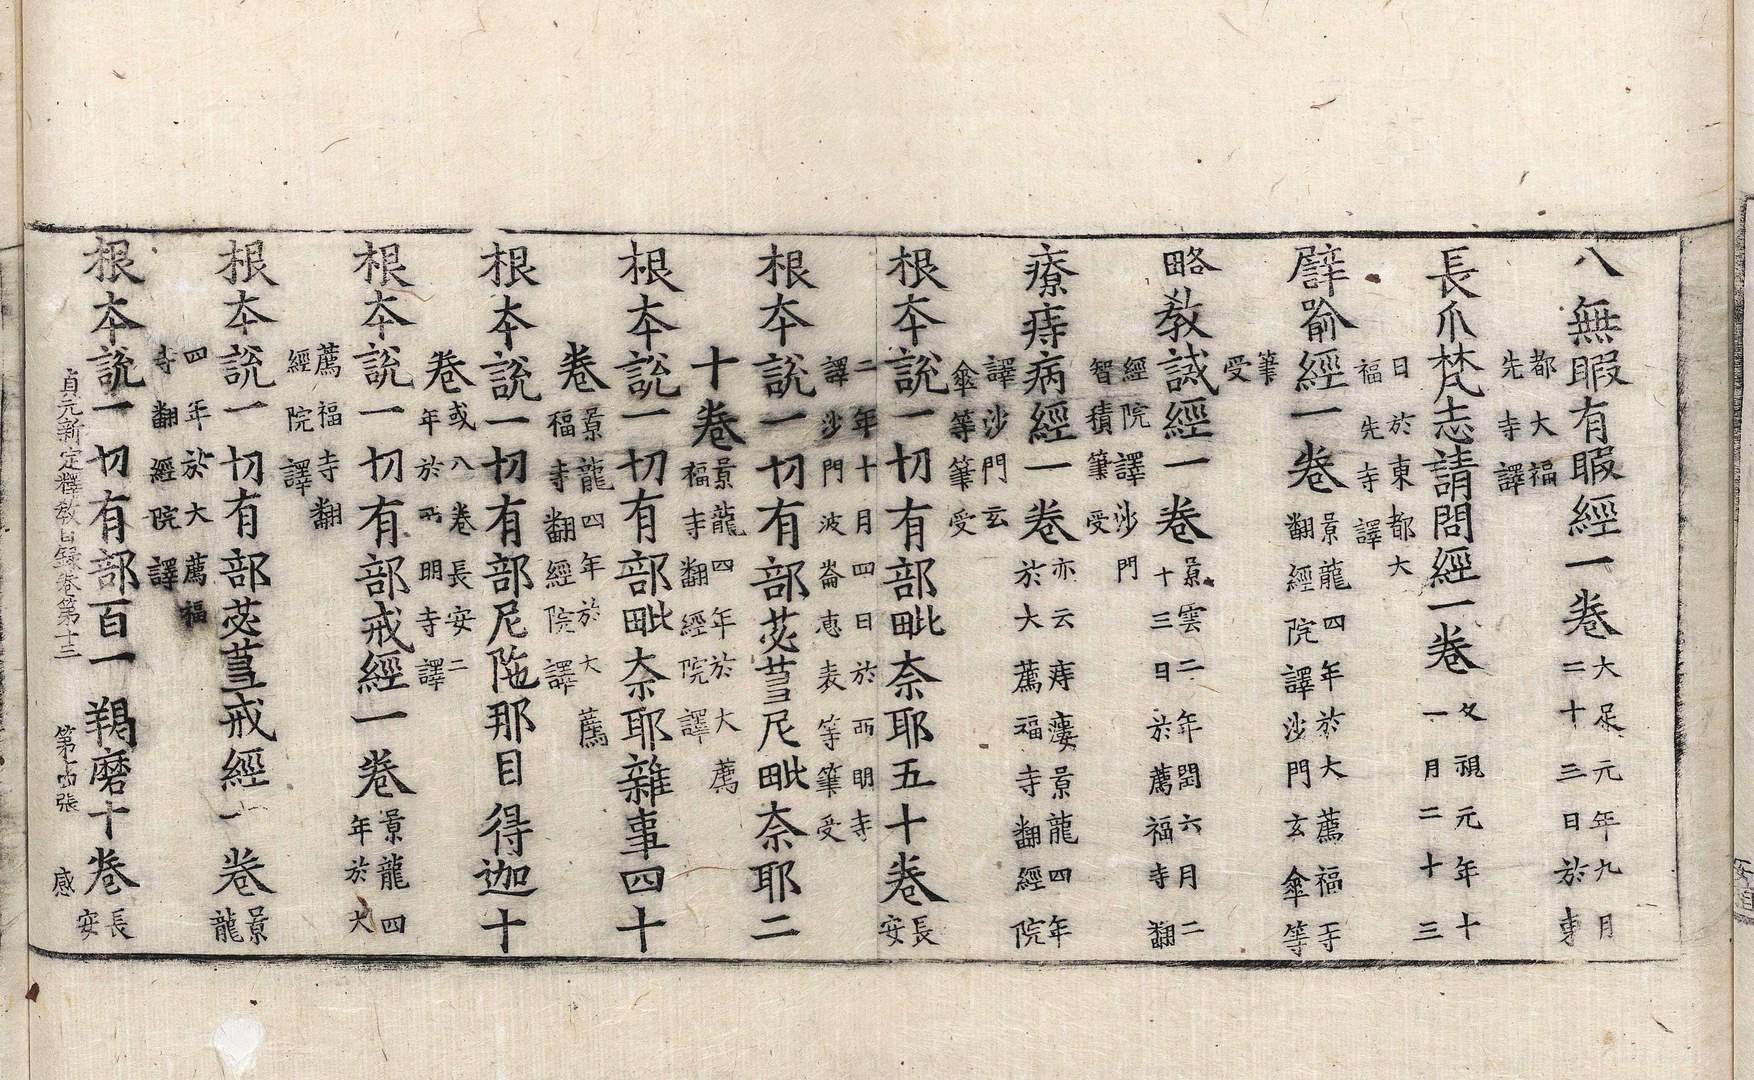 八無暇有暇經一卷大足元年九月二十三日於東
都大福先寺譯
長爪梵志請問經一卷久視元年十一月二十三
日於東都大福先寺譯
譬喻經一卷景龍四年於大薦福寺翻經院譯沙門玄傘等
筆受
略教誡經一卷景雲二年閏六月二十三日於薦福寺翻
經院譯沙門智積筆受
療痔病經一卷亦云痔瘻景龍四年於大薦福寺翻經院
譯沙門玄傘等筆受
根本說一切有部毗奈耶五十卷長安
二年十月四日於西明寺譯沙門波崙惠表等筆受
根本說一切有部苾蒭尼毗奈耶二
十卷景龍四年於大薦福寺翻經院譯
根本說一切有部毗奈耶雜事四十
卷景龍四年於大薦福寺翻經院譯
根本說一切有部尼陁那目得迦十
卷或八卷長安二年於西明寺譯
根本說一切有部戒經一卷景龍四年於大
薦福寺翻經院譯
根本說一切有部苾蒭戒經一卷景龍
四年於大薦福寺翻經院譯
根本說一切有部百一羯磨十卷長安
貞元新定釋教目録卷第十三 第張 感